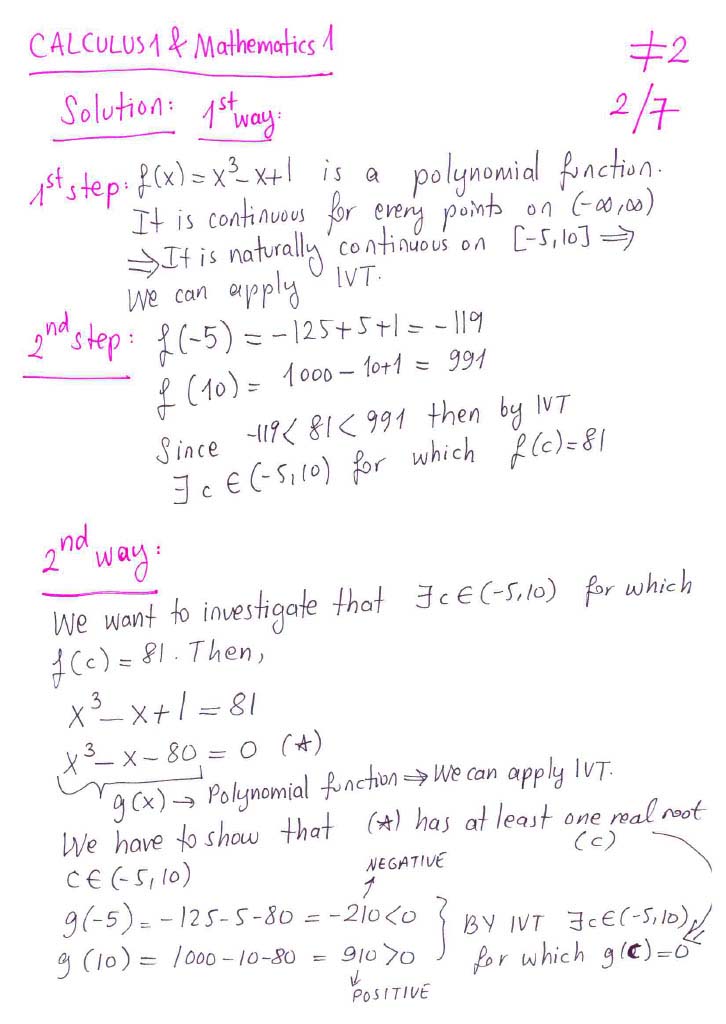 CALCULUS1 & Mathematics 1
#2
Solution: 1st way:
2/7
1st step: f(x) = x³ - x + 1 is a polynomial function.
It is continuous for every points on (-∞,∞)
⇒ It is naturally continuous on [-5,10] ⇒
We can apply IVT.
2nd step: f(-5) = -125+5+1 = -119
f(10) = 1000 - 10+1 = 991
Since -119 < 81 < 991 then by IVT
∃ c ∈ (-5,10) for which f(c)=81
2nd way:
We want to investigate that ∃c∈(-5,10) for which
f(c) = 81. Then,
x³ - x + 1 = 81
x³ - x - 80 = 0 (★)
g(x) → Polynomial function ⇒ We can apply IVT.
We have to show that (★) has at least one real root
(c)
c∈(-5,10)
NEGATIVE
g(-5) = -125-5-80 = -210<0 } BY IVT ∃c∈(-5,10)
g(10) = 1000-10-80 = 910>0 for which g(c)=0
POSITIVE